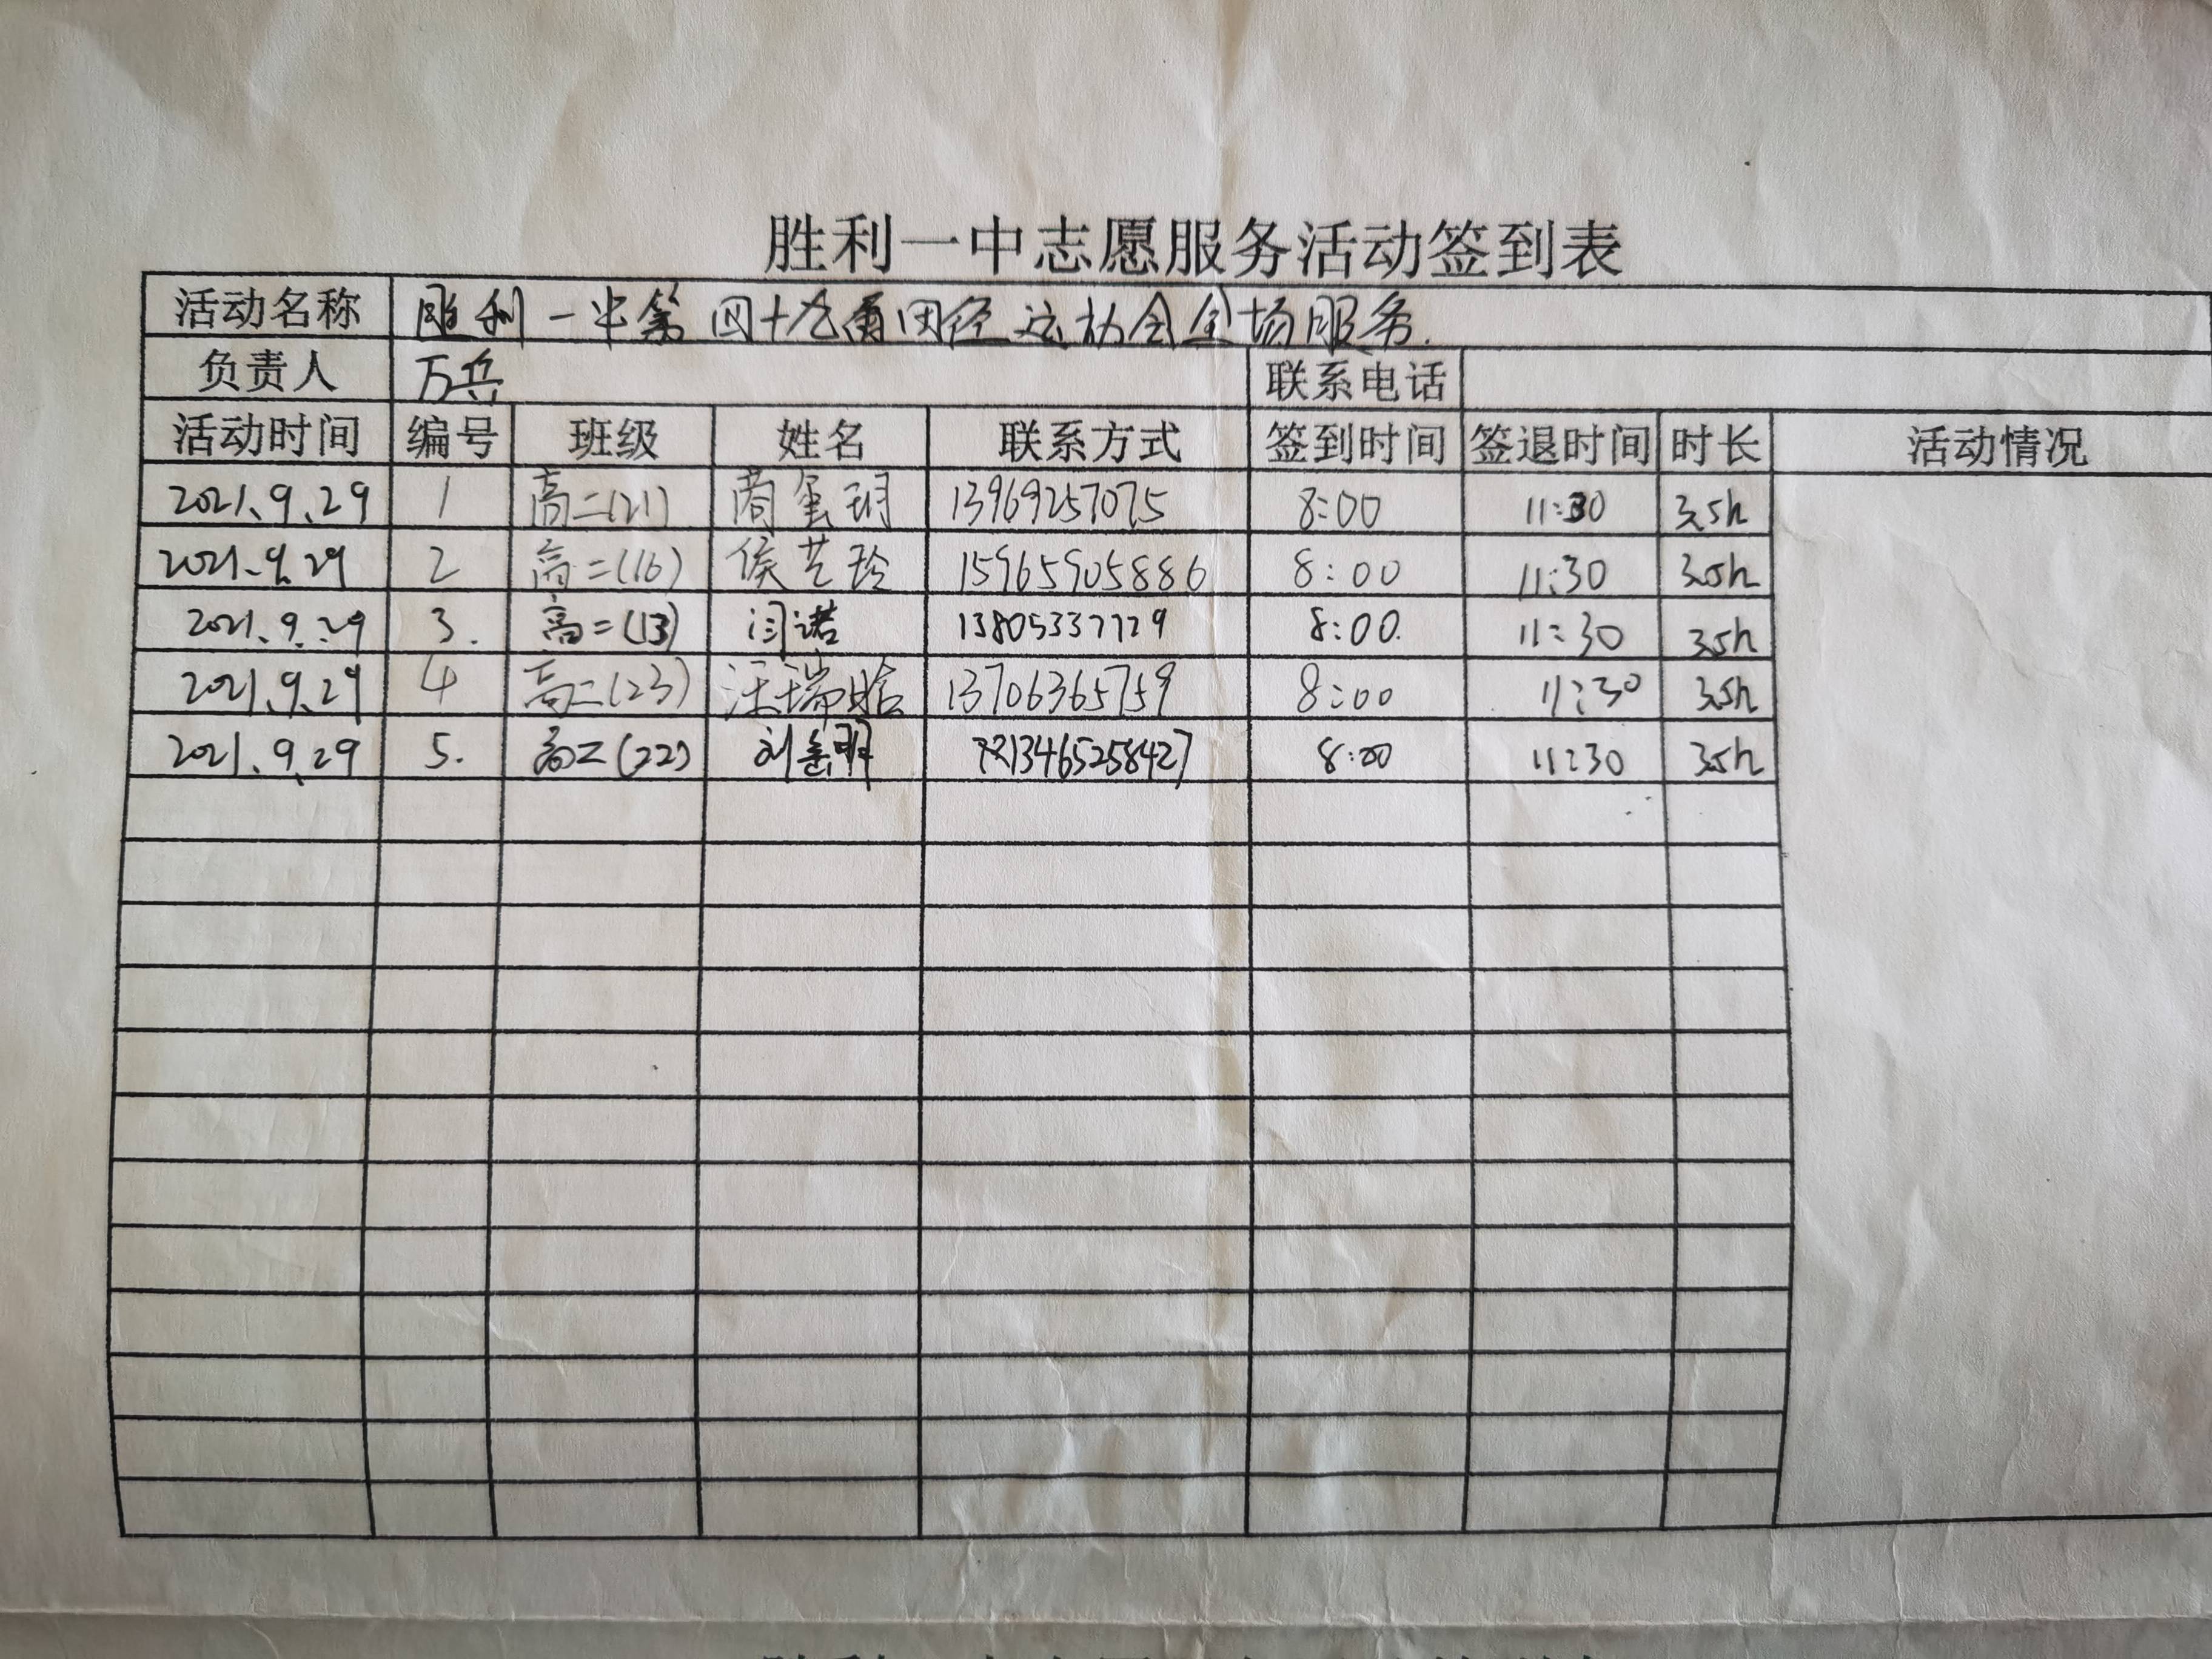 胜利一中志愿服务活动签到表
活动名称 胜利一中第四十九届田径运动会全场服务.
负责人 万兵 联系电话
活动时间 编号 班级 姓名 联系方式 签到时间 签退时间 时长 活动情况
2021.9.29 1 高二(21) 13969257075 8:00 11:30 3.5h
2021.9.29 2 高二(16) 侯艺玲 15965905886 8:00 11:30 3.5h
2021.9.29 3. 高二(13) 闫诺 13805337729 8:00. 11:30 3.5h
2021.9.29 4 高二(23) 汪瑞晗 13706365759 8:00 11:30 3.5h
2021.9.29 5. 高二(22) 13465258427 8:00 11:30 3.5h